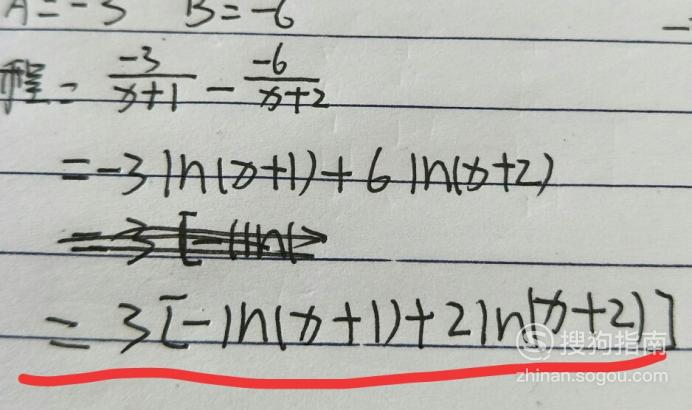 A=-3 B=-6
程= \frac{-3}{x+1} - \frac{-6}{x+2}
=-3 ln(x+1)+6 ln(x+2)
=3[-ln(x+1)+2ln(x+2)]
搜狗指南
zhinan.sogou.com